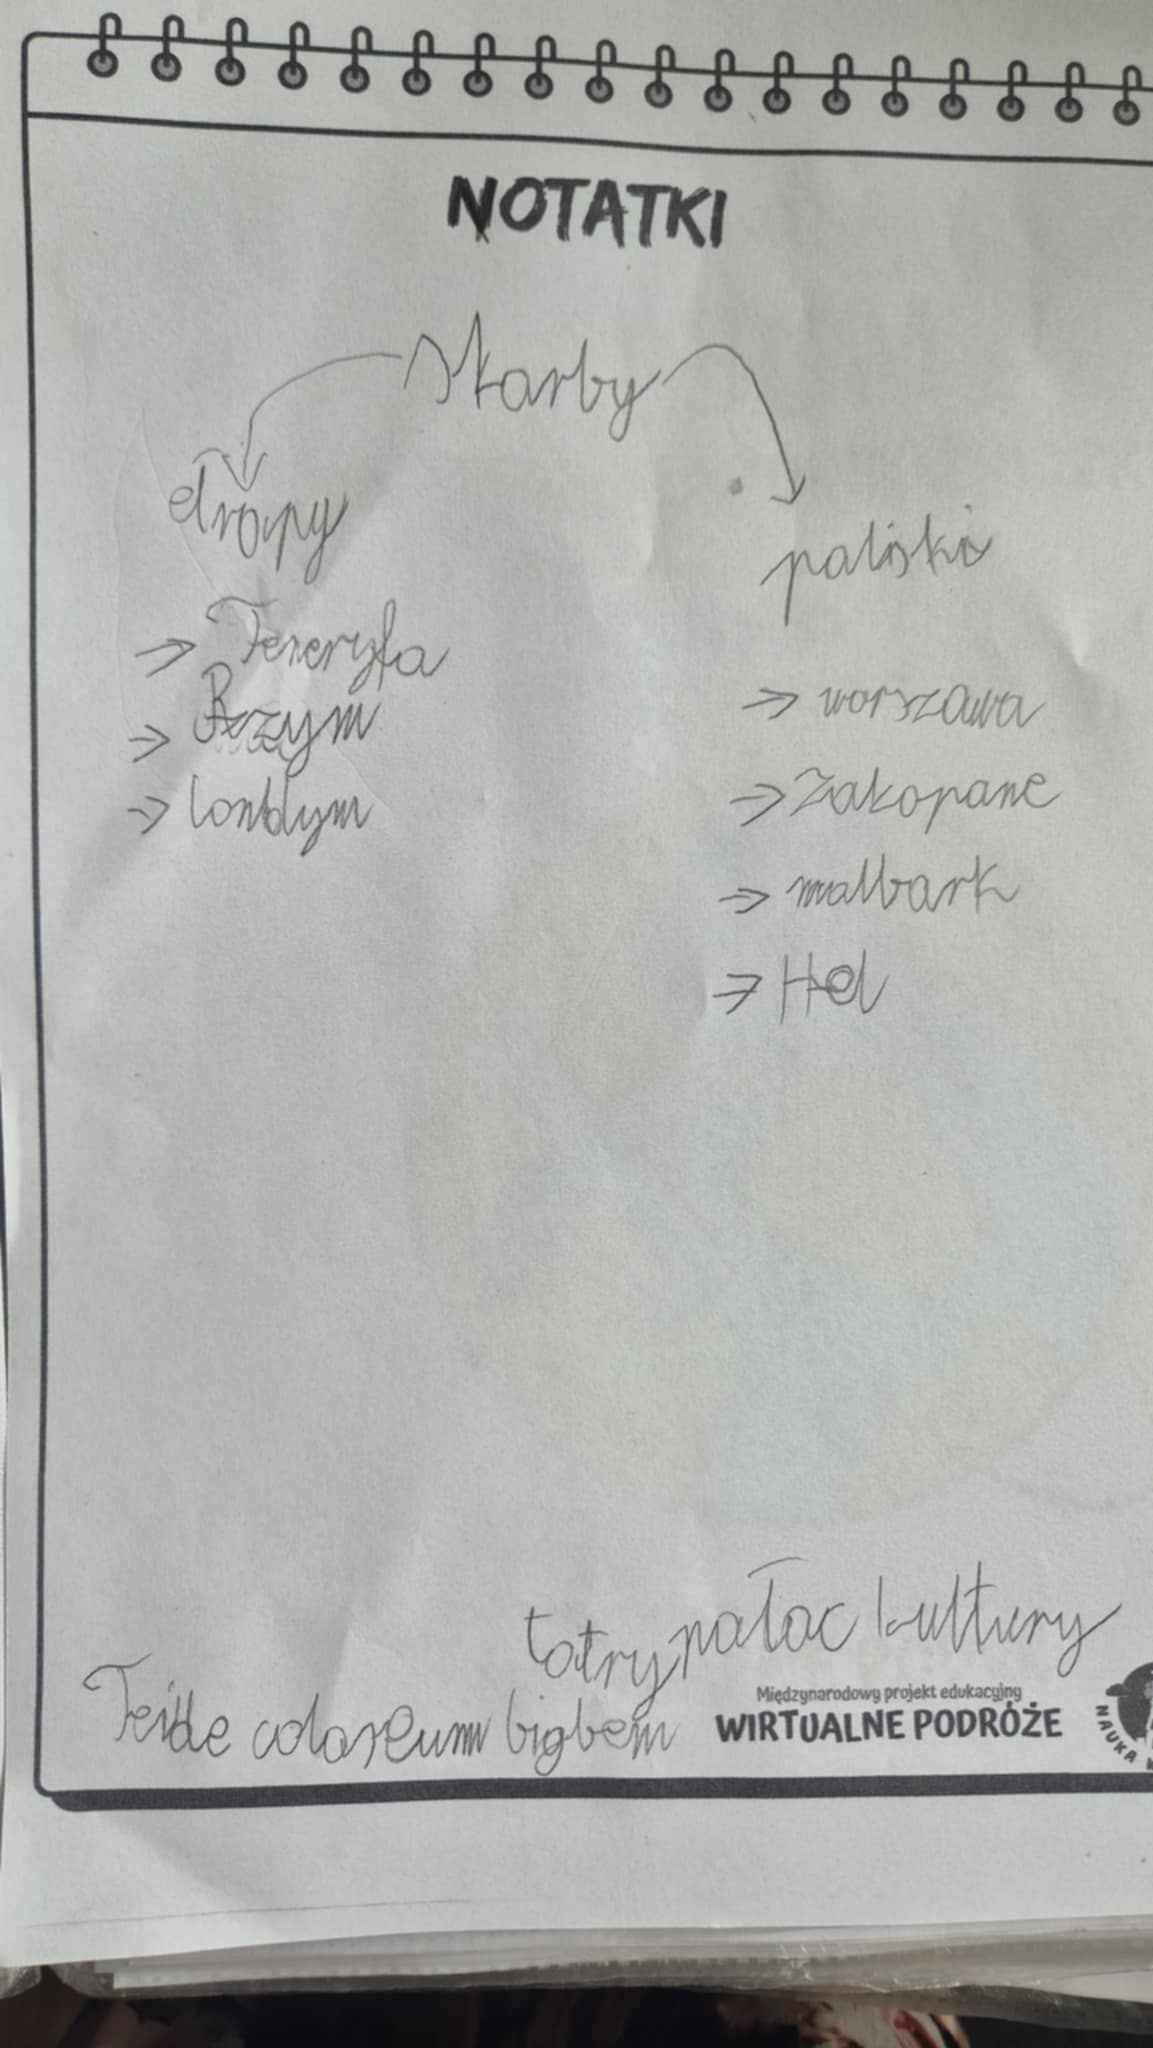 NOTATKI
skarby
elropy
poliski
→ Teneryfa
→ Rzym
→ londym
→ worszawa
→ Zakopane
→ malbark
→ Hel
tatry pałac kultury
Teide coloseum bigbem
Międzynarodowy projekt edukacyjny
WIRTUALNE PODRÓŻE
NAUKA